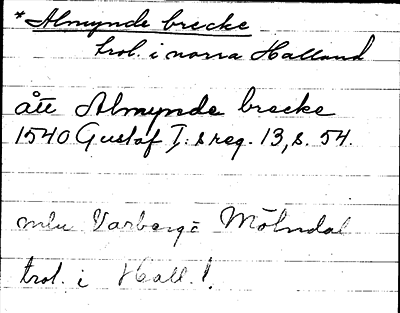 * Almynde brecke
trol. i norra Halland
ått Almynde brecke
1540 Gustaf I:s reg. 13, s. 54.
mlu Varberg - Mölndal
trol. i Hall.!